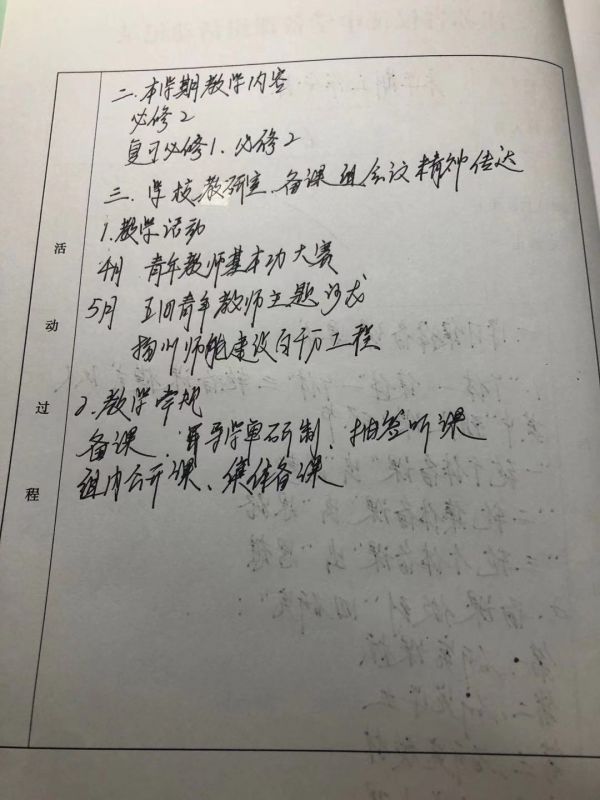 二.本学期教学内容
必修2
复习必修1、必修2
三.学校教研室、备课组会议精神传达
1.教学活动
4月 青年教师基本功大赛
5月 五四青年教师主题沙龙
扬州师能建设百千万工程
2.教学常规
备课、导学单研制、抽签听课
组内公开课、集体备课
活
动
过
程